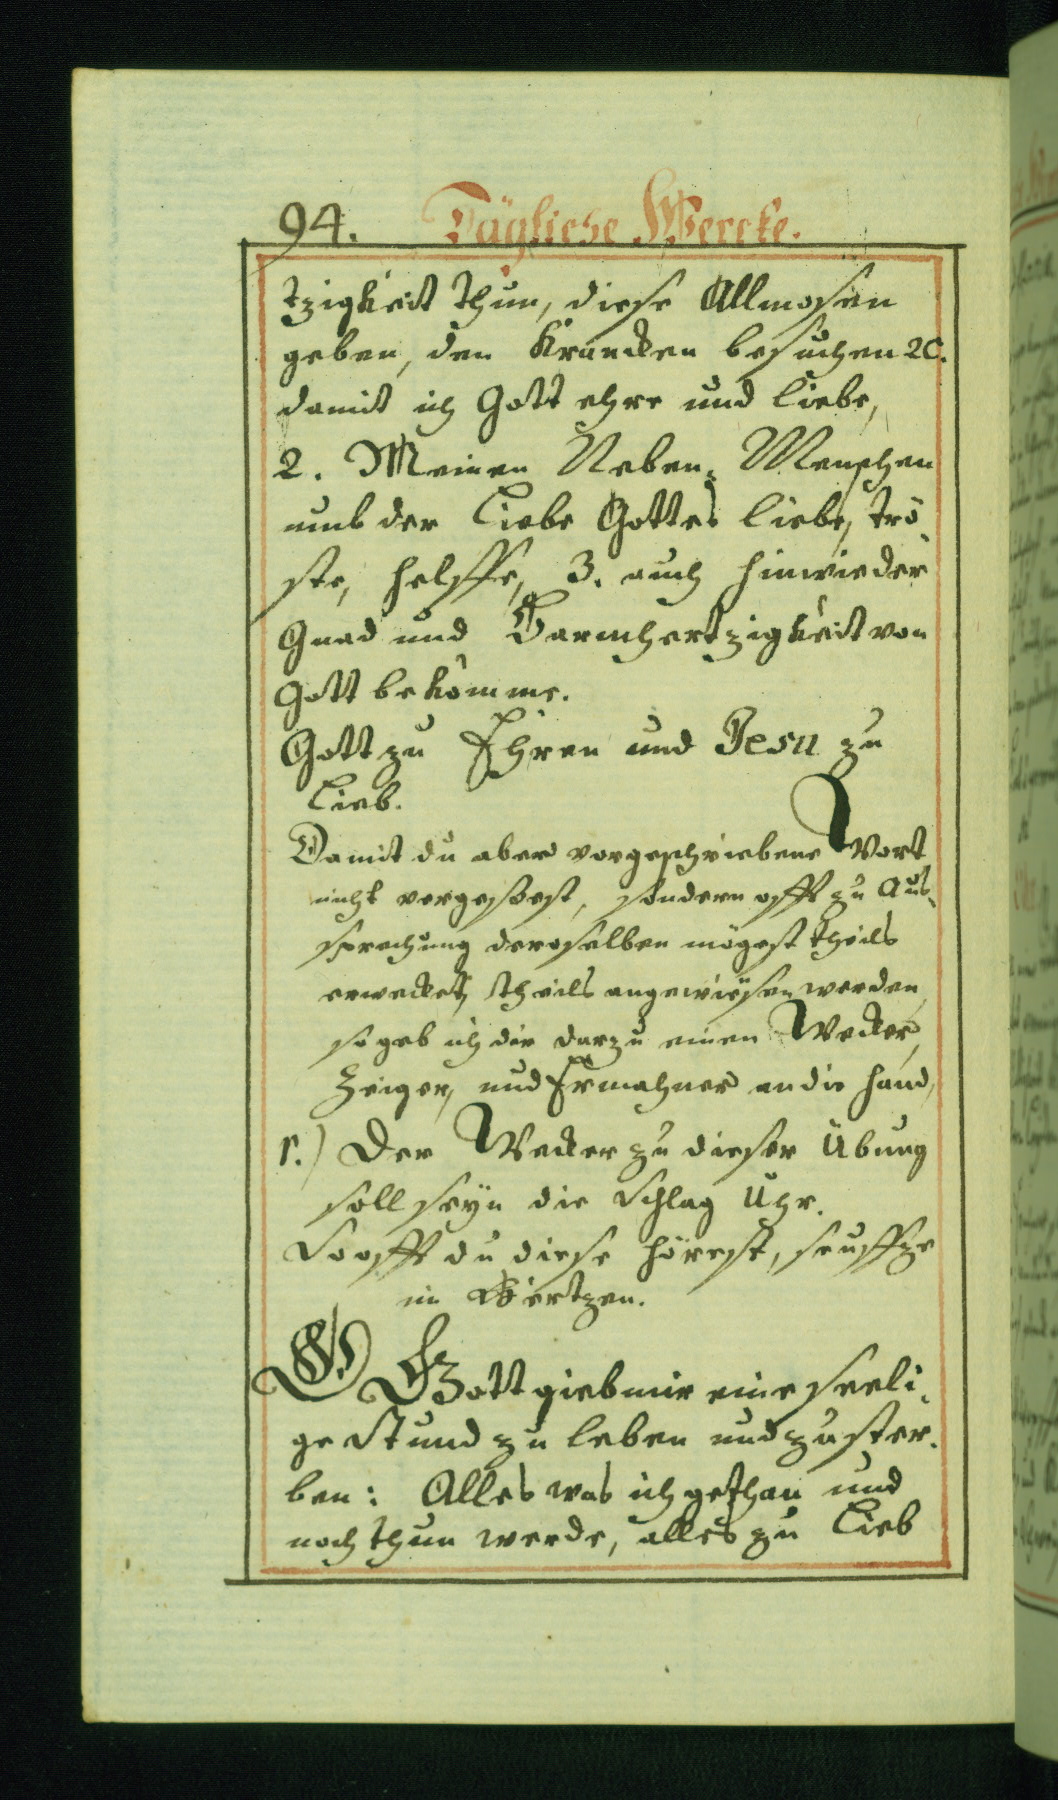 94. Tägliche Wercke.
tzigkeit thun, diese Allmosen
geben, den Krancken besuchen ꝛc.
damit ich Gott ehre und liebe,
2. Meinen Neben-Menschen
umb der Liebe Gottes liebe, trö
ste, helffe, 3. auch hinwieder
Gnad und Barmhertzigkeit von
Gott bekomme.
Gott zu Ehren und Jesu zu
Lieb.
Damit du aber vorgeschriebene Wort
nicht vergessest, sondern offt zu Aus-
sprechung deroselben mögest theils
erwecket, theils angewiesen werden,
so geb ich dir darzu einen Wecker,
Zeiger, und Ermahner an die Hand,
1.) Der Wecker zu dieser Übung
soll seyn die Schlag Uhr.
So offt du diese hörest, seuffze
im Hertzen.
O Gott gieb mir eine seeli-
ge Stund zu leben und zu ster-
ben: Alles was ich gethan und
noch thun werde, alles zu Lieb